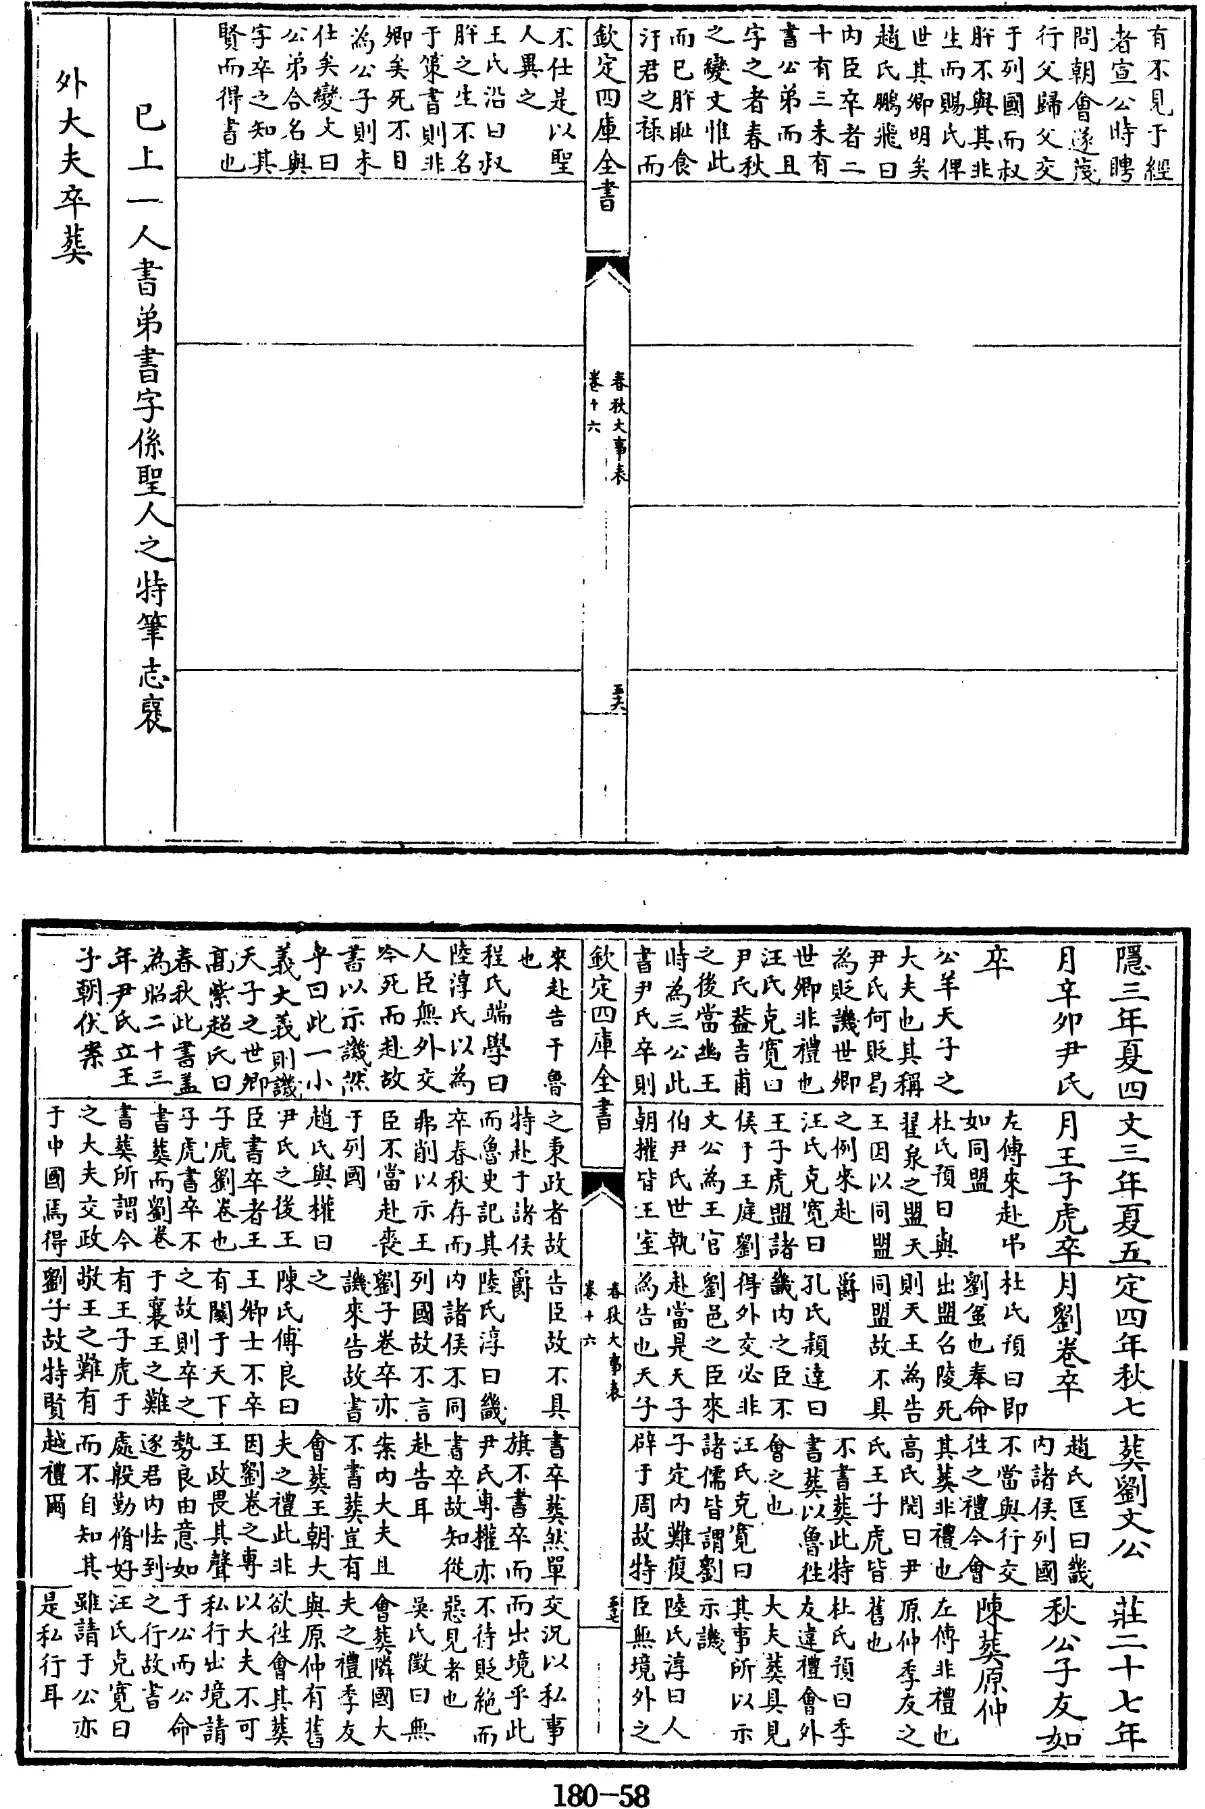 有不見于經
者宣公時聘
問朝會遂蔑
行父歸父交
于列國而叔
肸不與其非
生而賜氏俾
世其卿明矣
趙氏鵬飛曰
内臣卒者二
十有三未有
書公弟而且
字之者春秋
之變文惟此
而已肸恥食
汙君之祿而
欽定四庫全書
春秋大事表
卷十六
五六
不仕是以聖
人異之
王氏沿曰叔
肸之生不名
于策書則非
卿矣死不目
為公子則未
仕矣變文曰
公弟合名與
字卒之知其
賢而得書也
已上一人書弟書字係聖人之特筆志褒
外大夫卒葬
隱三年夏四
月辛卯尹氏
卒
公羊天子之
大夫也其稱
尹氏何貶曷
為貶譏世卿
世卿非禮也
汪氏克寛曰
尹氏蓋吉甫
之後當幽王
時為三公此
書尹氏卒則
文三年夏五
月王子虎卒
左傳來赴弔
如同盟
杜氏預曰與
翟泉之盟天
王因以同盟
之例來赴
汪氏克寛曰
王子虎盟諸
侯于王庭劉
文公為王官
伯尹氏世執
朝權皆王室
定四年秋七
月劉卷卒
杜氏預曰即
劉蚠也奉命
出盟召陵死
則天王為告
同盟故不具
爵
孔氏頴達曰
畿内之臣不
得外交必非
劉邑之臣來
赴當是天子
為告也天子
葬劉文公
趙氏匡曰畿
内諸侯列國
不當與行交
徃之禮今會
其葬非禮也
高氏閌曰尹
氏王子虎皆
不書葬此特
書葬以魯徃
會之也
汪氏克寛曰
諸儒皆謂劉
子定内難復
辟于周故特
莊二十七年
秋公子友如
陳葬原仲
左傳非禮也
原仲季友之
舊也
杜氏預曰季
友違禮會外
大夫葬具見
其事所以示
示譏
陸氏淳曰人
臣無境外之
欽定四庫全書
春秋大事表
卷十六
五七
來赴告于魯
也
程氏端學曰
陸淳氏以為
人臣無外交
今死而赴故
書以示譏然
乎曰此一小
義大義則譏
天子之世卿
髙紫超氏曰
春秋此書蓋
為昭二十三
年尹氏立王
子朝伏案
之秉政者故
特赴于諸侯
而魯史記其
卒春秋存而
弗削以示王
臣不當赴喪
于列國
趙氏與權曰
尹氏之後王
臣書卒者王
子虎劉卷也
子虎書卒不
書葬而劉卷
書葬所謂今
之大夫交政
于中國焉得
告臣故不具
爵
陸氏淳曰畿
内諸侯不同
列國故不言
劉子卷卒亦
譏來告故書
之
陳氏傅良曰
王卿士不卒
有關于天下
之故則卒之
于襄王之難
有王子虎于
敬王之難有
劉子故特賢
書卒葬然單
旗不書卒而
尹氏專權亦
書卒故知從
赴告耳
案内大夫且
不書葬豈有
會葬王朝大
夫之禮此非
因劉卷之專
王政畏其聲
勢良由意如
逐君内怯到
處般勤脩好
而不自知其
越禮爾
交況以私事
而出境乎此
不待貶絶而
惡見者也
吳氏徵曰無
會葬隣國大
夫之禮季友
與原仲有舊
欲徃會其葬
以大夫不可
私行出境請
于公而公命
之行故書
汪氏克寛曰
雖請于公亦
是私行耳
180-58